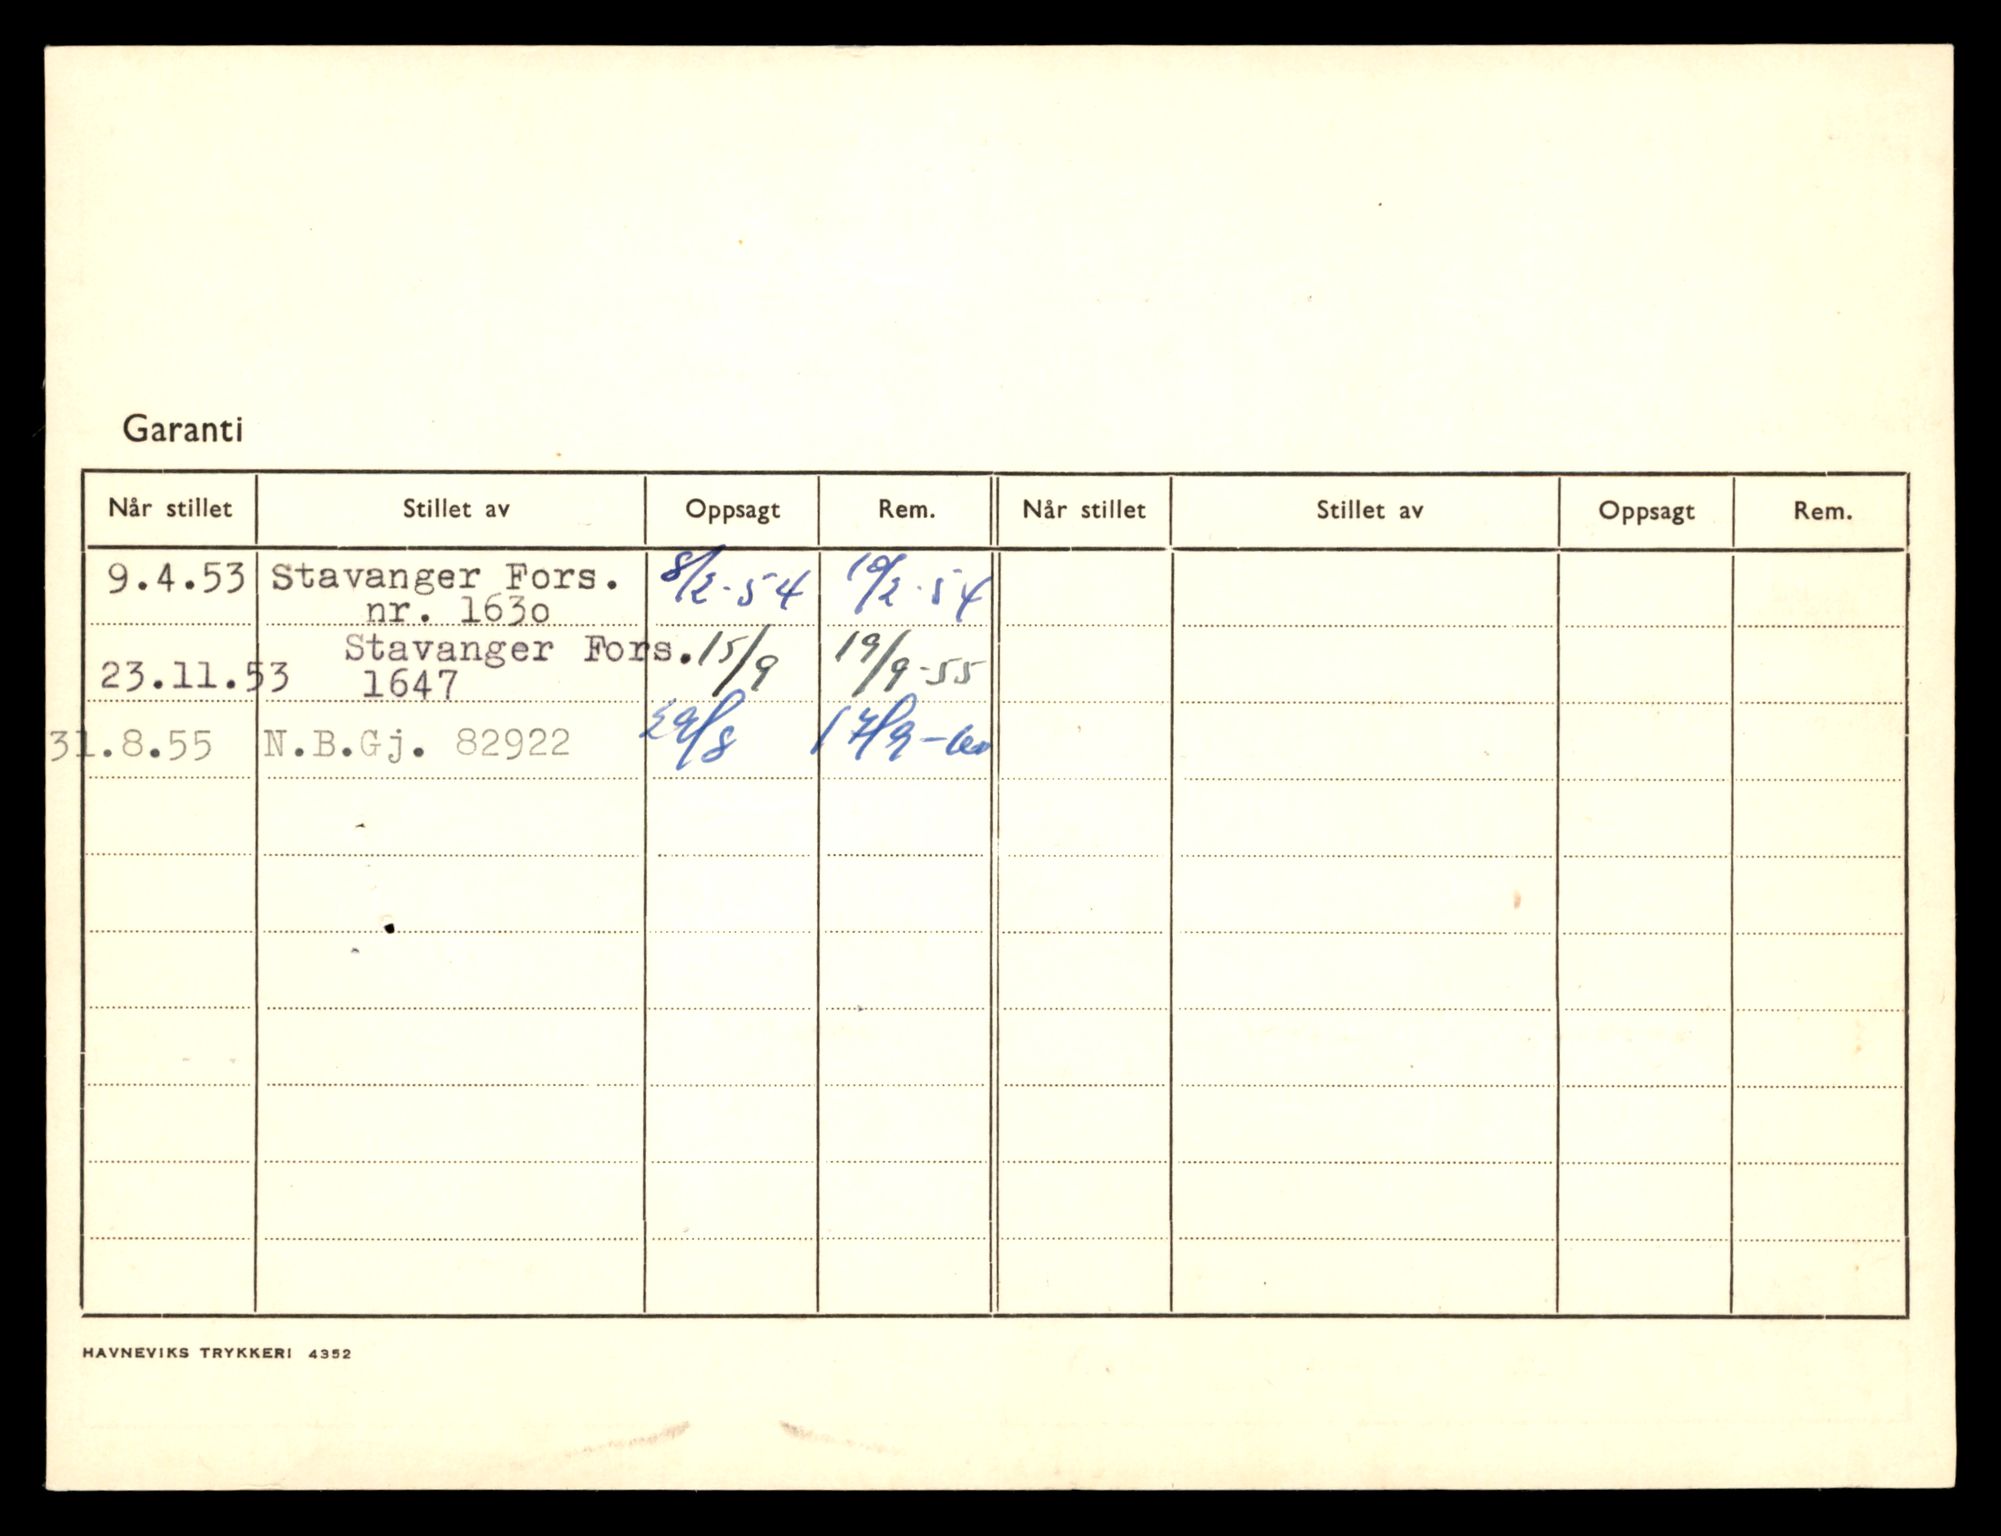 Garanti
Når stillet Stillet av Oppsagt Rem. Når stillet Stillet av Oppsagt Rem.
9.4.53 Stavanger Fors. 8/2-54 10/2-54
nr. 1630
Stavanger Fors. 15/9 19/9-55
23.11.53 1647
31.8.55 N.B.Gj. 82922 29/8 17/9-60
HAVNEVIKS TRYKKERI 4352